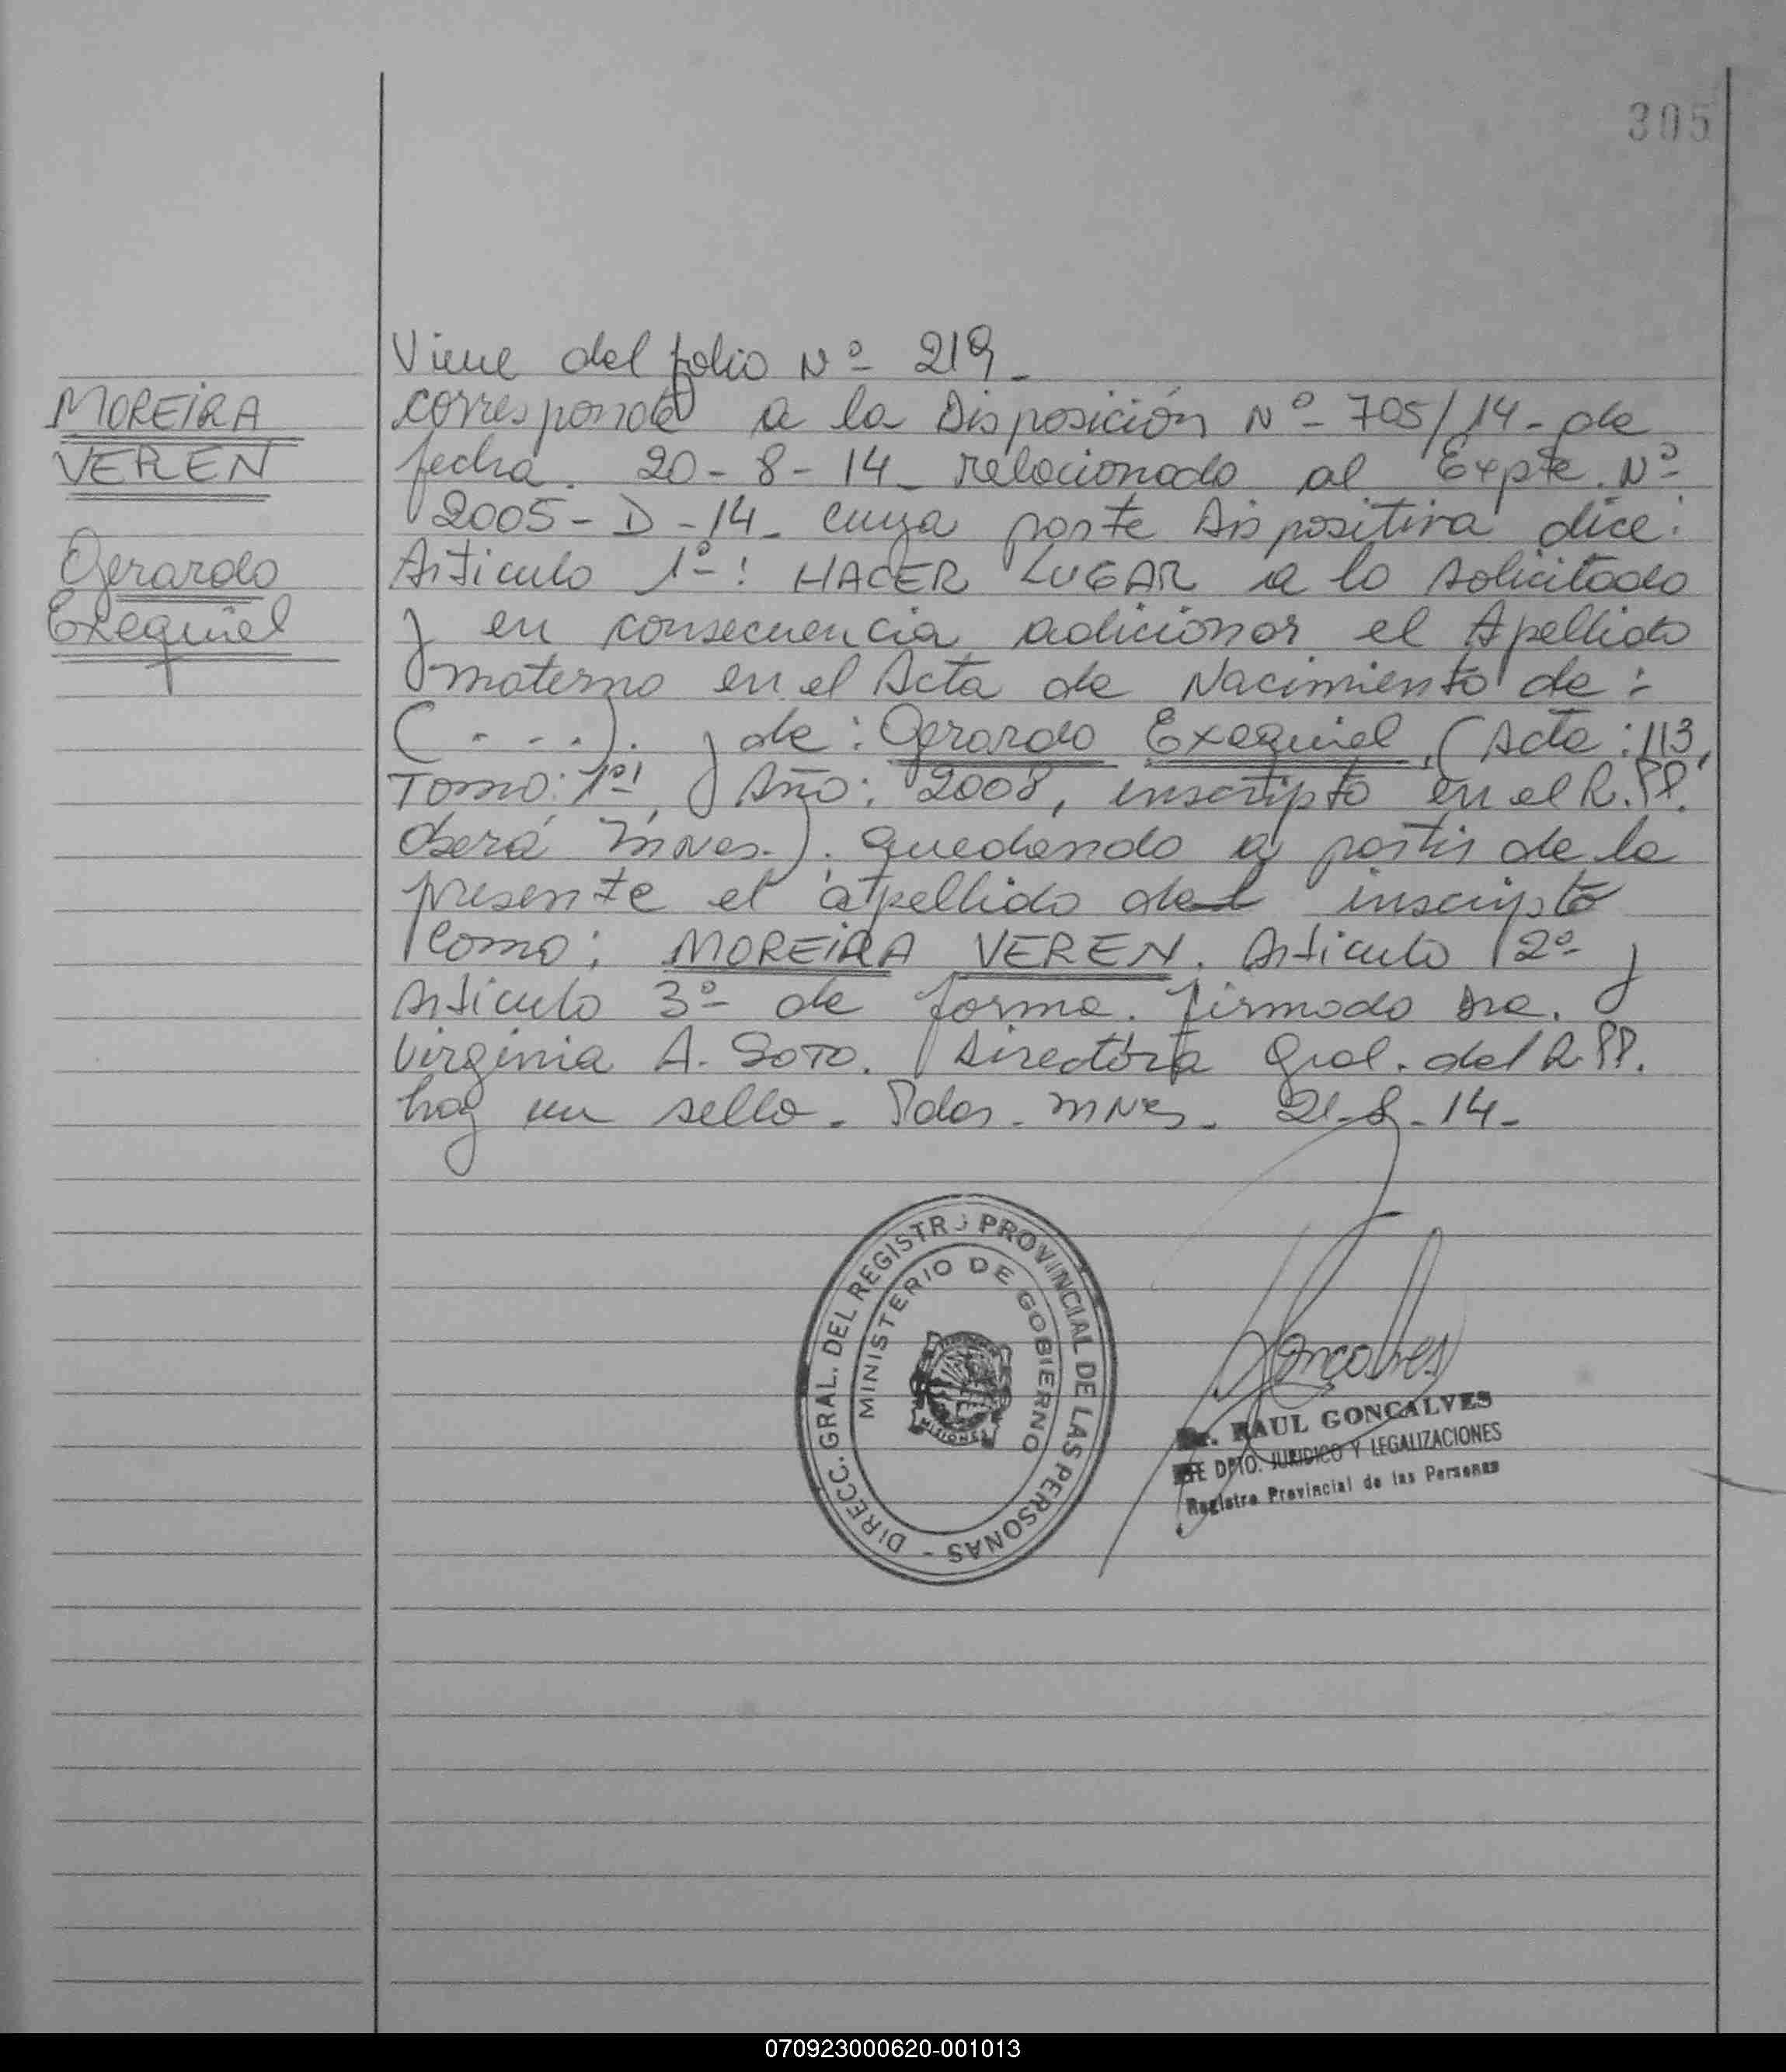 305
MOREIRA
VEREN
Gerardo
Exequiel
Viene del folio Nº 219_
corresponde a la Disposición Nº 705/14_ de
fecha. 20-8-14_ relacionado al Expte. Nº
2005-D-14_ cuya parte Dispositiva dice:
Articulo 1º: HACER LUGAR a lo solicitado
y en consecuencia adicionar el Apellido
materno en el Acta de Nacimiento de:
(....). y de: Gerardo Exequiel, (Acta: 113,
Tomo: 1º, y Año: 2008, inscripto en el R.PP.
Oberá Mnes.). Quedando a partir de la
presente el apellido del inscripto
como: MOREIRA VEREN. Articulo 2º y
Articulo 3º de forma. firmado Dra.
Virginia A. SOTO. Directora Gral. del R.PP.
hay un sello. Pdas. Mnes. 21-8-14-
DIRECC. GRAL. DEL REGISTRO PROVINCIAL DE LAS PERSONAS -
MINISTERIO DE GOBIERNO
MISIONES
Gonçalves
Dr. RAUL GONCALVES
JEFE DPTO. JURIDICO Y LEGALIZACIONES
Registro Provincial de las Personas
070923000620-001013